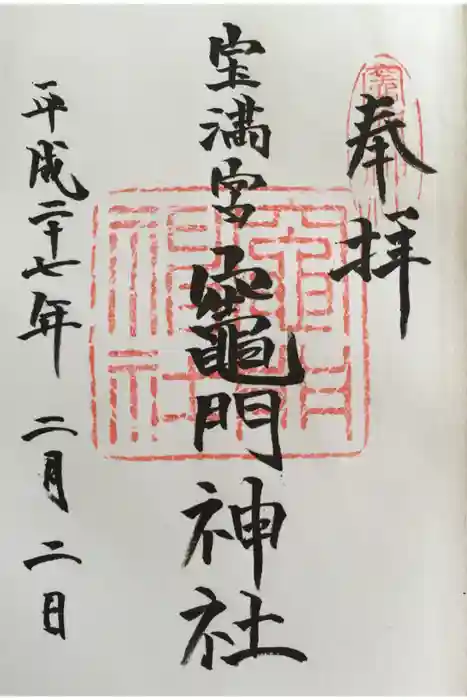 奉拝
宝満宮竈門神社
平成二十七年 二月 二日
竈門神社